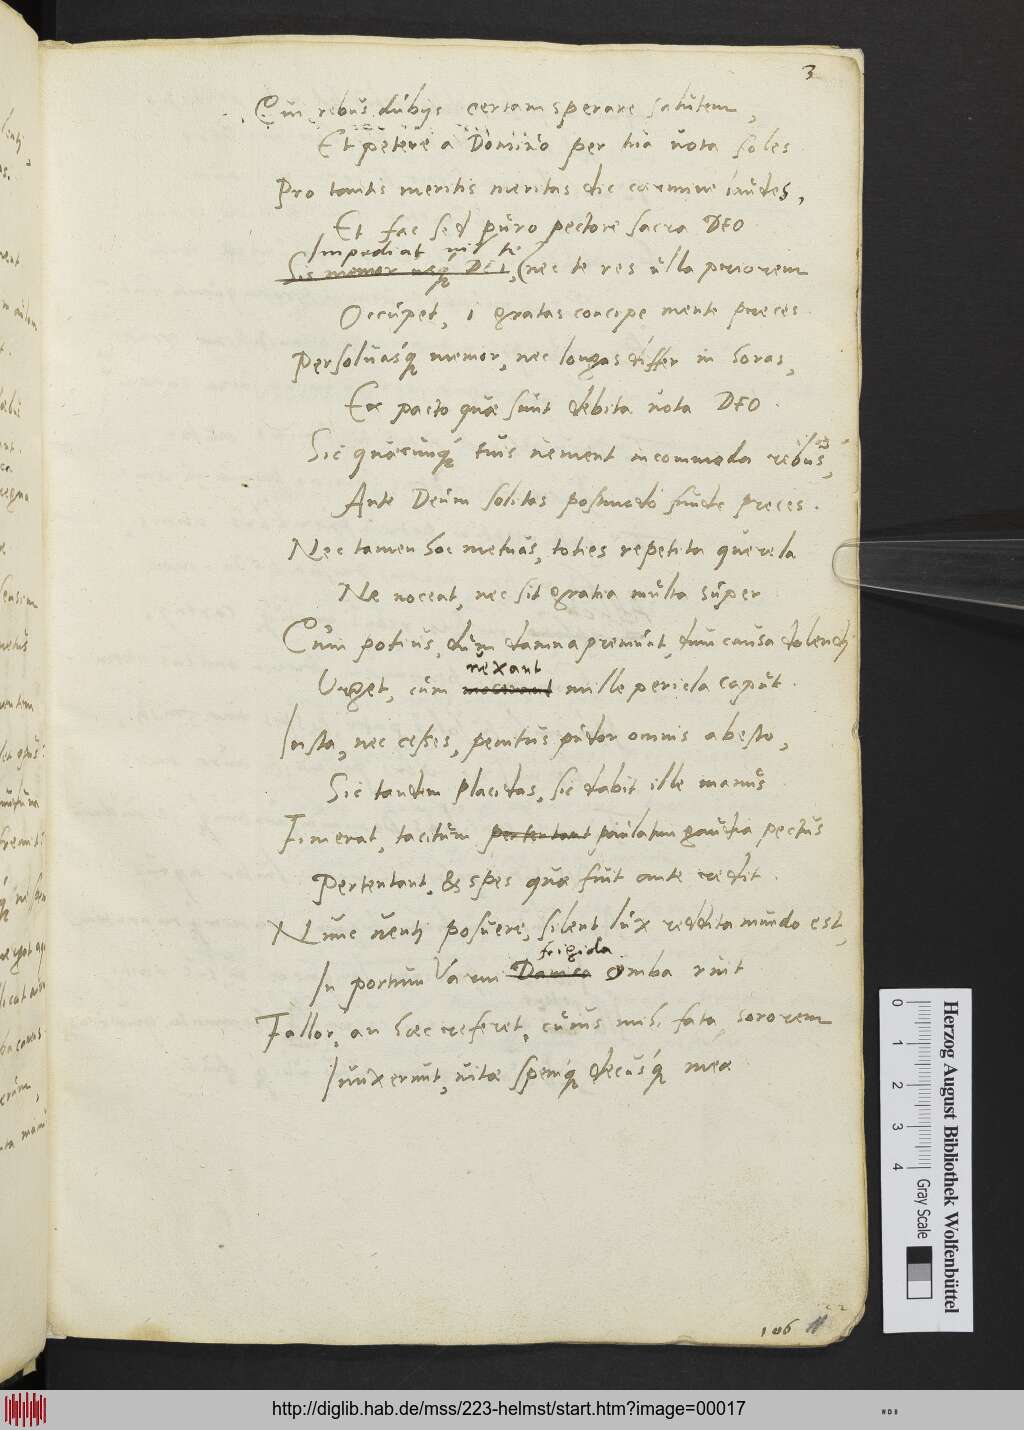 3
Cum rebus dubijs certam sperare salutem,
Et petere a Domino per tua vota soles
Pro tantis meritis meritas dic carmine laudes,
Et fac sed puro pectore sacra DEO
Impediat nil te
Sis memor usq́ DEI, (nec te res ulla priorem
Occupet, i gratas concipe mente preces
Persoluasq́ memor, nec longas differ in horas,
Ex pacto quæ sunt debita vota DEO.
Sic quæcunq́ tuis vement incommoda rebus,
Ante Deum solitas postmodo funde preces.
Nec tamen hoc metuas, toties repetita querela
Ne noceat, nec sit gratia multa super
Cum potius, dum damna premunt, dum causa dolendi
vexant
Urget, cum mille pericla caput.
Insta, nec cesses, penitus pudor omnis abesto,
Sic tandem placidas, sic dabit ille manus
Fimerat, tacitum pertentant paulatim gaudia pectus
Pertentant, & spes quæ fuit ante redit.
Nunc venti posuere, silent lux reddita mundo est,
frigida
In portum Varni Damica cymba ruit
Fallor, an hæc referet, cuius mihi fata sororem
Iunxerunt, vitæ spemq́ decusq́ meæ
106
Herzog August Bibliothek Wolfenbüttel
0 1 2 3 4
Gray Scale
http://diglib.hab.de/mss/223-helmst/start.htm?image=00017